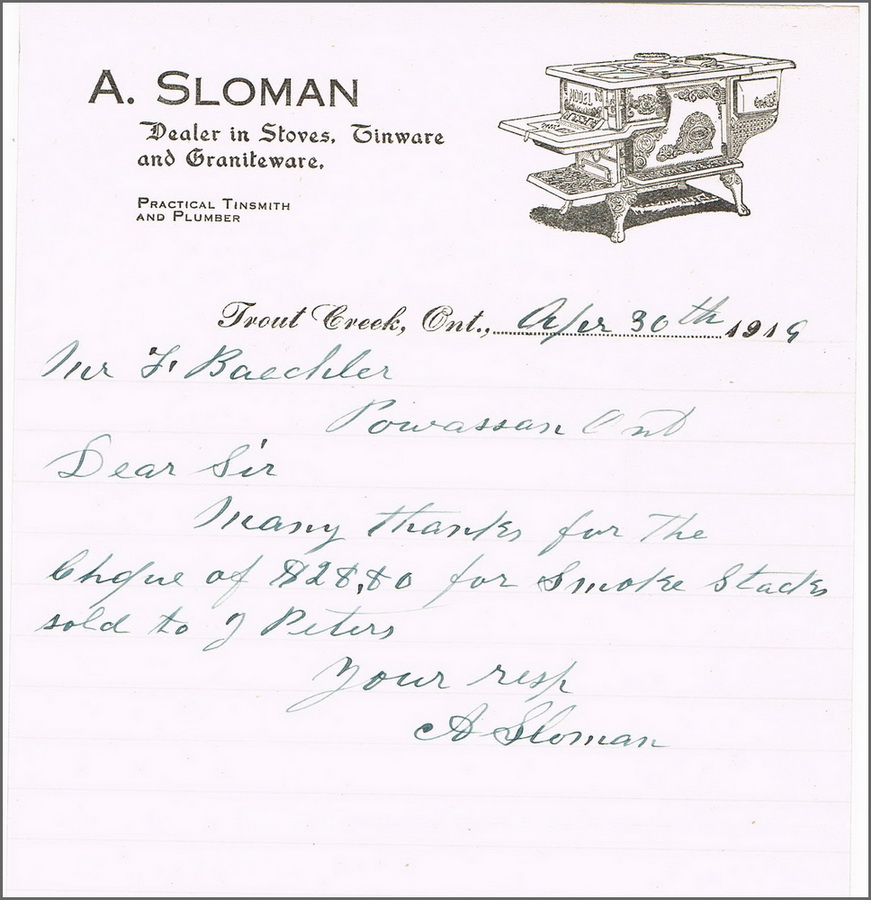 A. SLOMAN
Dealer in Stoves, Tinware
and Graniteware.
PRACTICAL TINSMITH
AND PLUMBER
MODEL
Trout Creek, Ont., Aper 30th 1919
Mr F. Baechler
Powassan Ont
Dear Sir
Many thanks for The
Chque of $28,80 for Smoke Stacks
sold to J Peters
Your resp
A Sloman